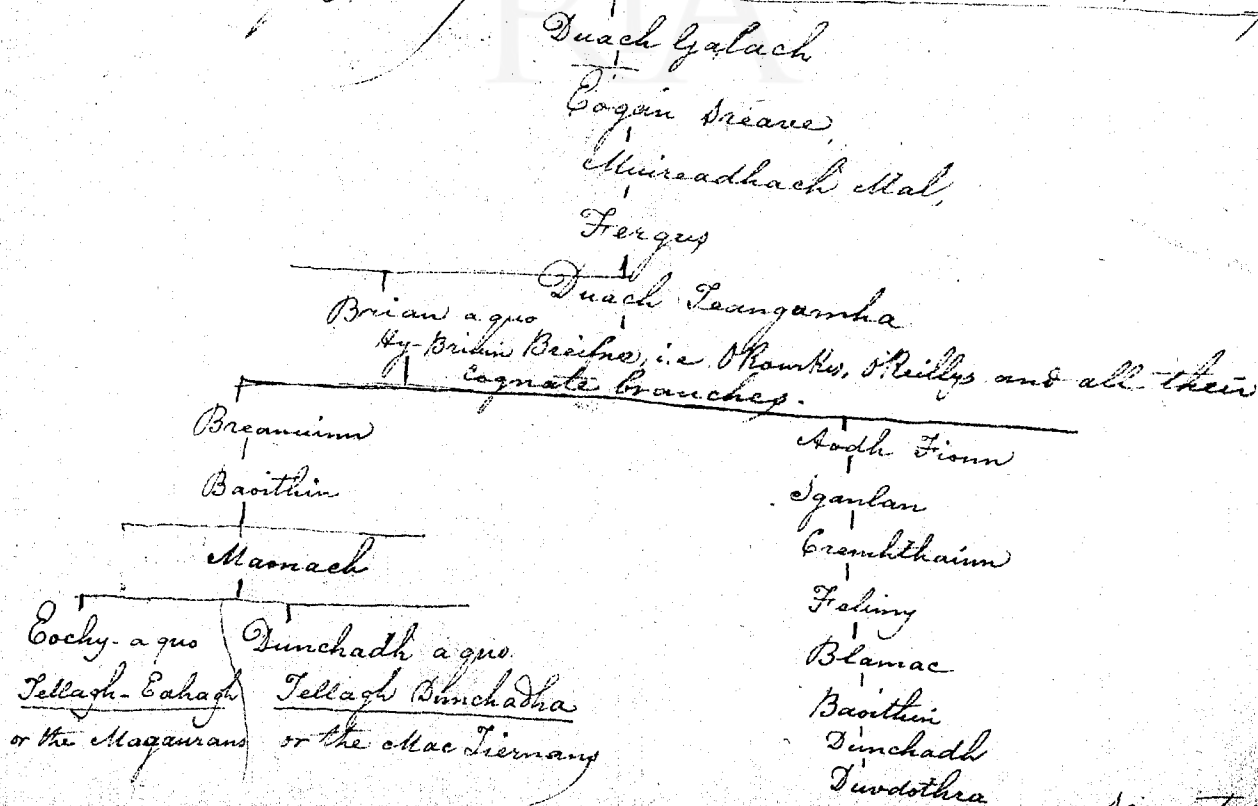 Duach Galach
Eogan Sreave,
Muireadhach Mal,
Fergus
Duach Teangamha
Brian a quo
Hy-Briuin Breifne, i.e. O'Rourkes, O'Reillys and all their
cognate branches.
Breanuinn
Baoithin
Maonach
Eochy - a quo
Tellagh-Eahagh
or the Magaurans
Dunchadh a quo
Tellagh Dunchadha
or the Mac Tiernans
Aodh Fionn
Sganlan
Cremhthainn
Felimy
Blamac
Baoithin
Dunchadh
Duvdothra